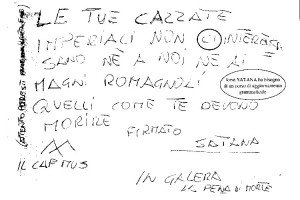 LE TUE CAZZATE
IMPERIALI NON CI INTERES
SANO NÈ A NOI NE AI
MAGNI ROMAGNOLI
QUELLI COME TE DEVONO
MORIRE
FIRMATO
SATANA
IL CAPMUS
IN GALERA
LA PENA DI MORTE
forse SATANA ha bisogno
di un corso di aggiornamento
grammaticale
ATTENTO